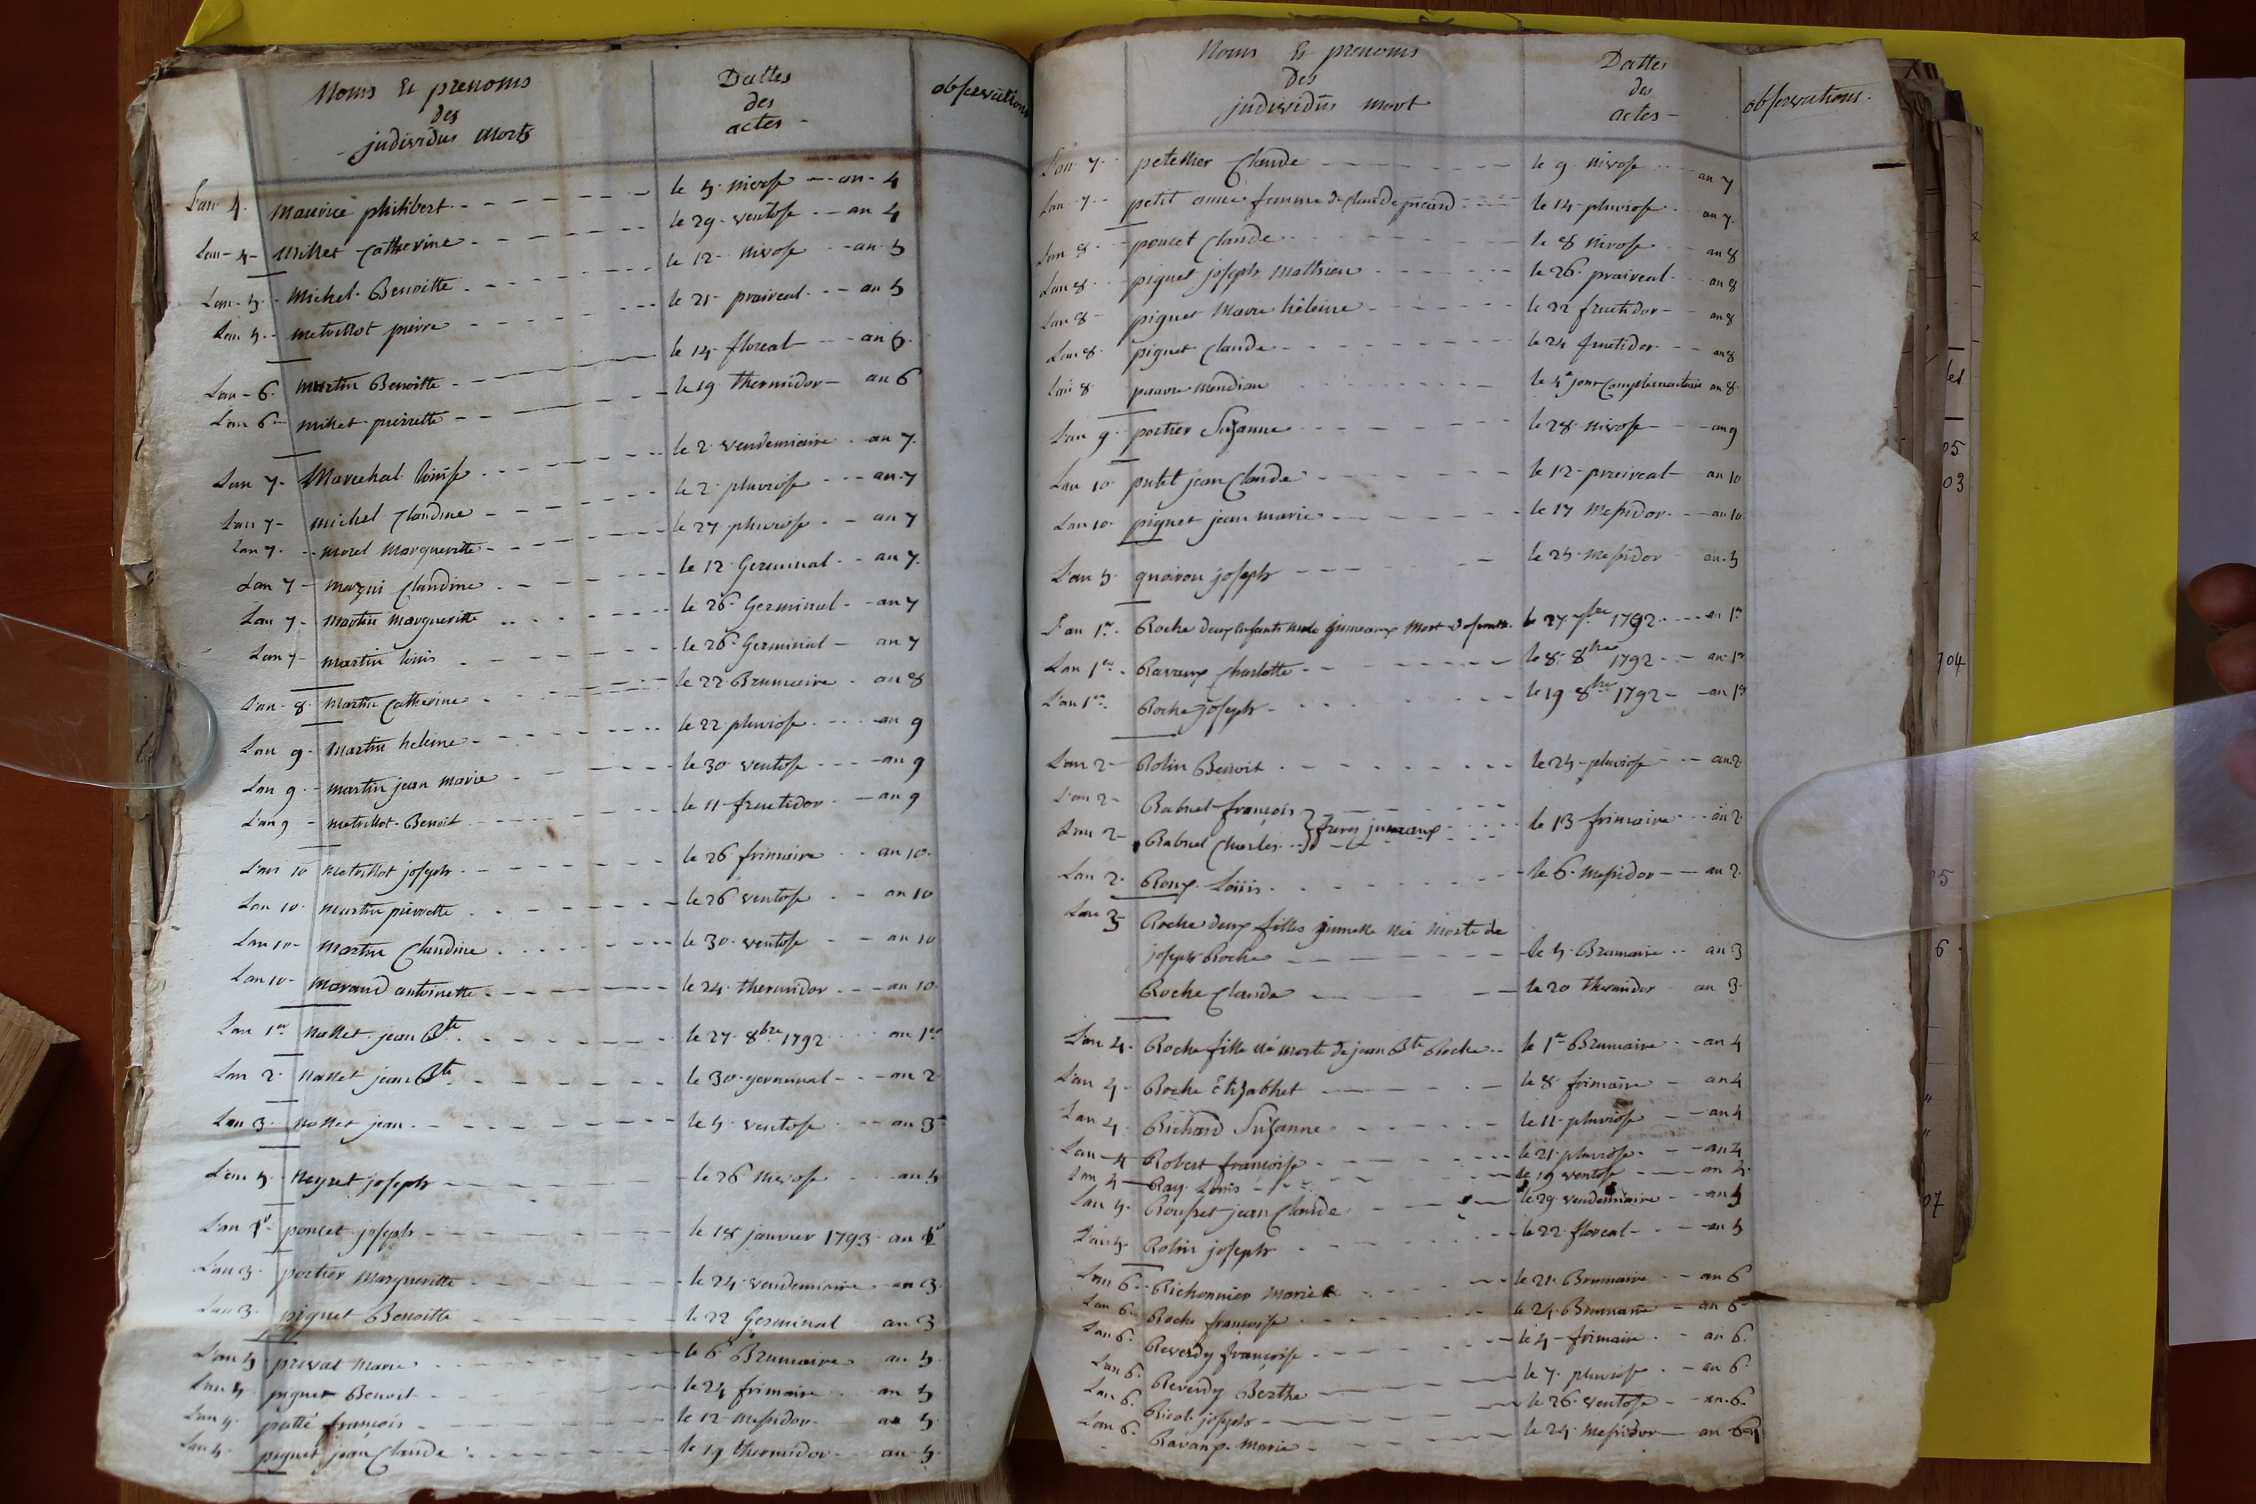 Noms Et prenoms
des
individus Morts
Dattes
des
actes -
observations
L'an 4. Maurice philibert - - - le 5 nivose - an - 4
L'an - 4 - Millet Catherine - - - le 29 - ventose - an 4
L'an - 5 - Michel - Benoitte - - - le 12 - Nivose - an 5
L'an 5 - pierre - - - le 21 - praireal - an 5
L'an - 6 Martin Benoitte - - - le 14 - floreal - an 6.
L'an 6 - millet - pierrette - - - le 19 thermidor - an 6
L'an 7 - Marechal louise - - - le 2 vendemiaire - an 7.
L'an 7 - michel Claudine - - - le 2 - pluviose - an - 7
L'an 7 - morel Margueritte - - - le 27 pluviose - an 7
L'an 7 - Claudine - - - le 12 Germinal - an 7.
L'an 7 - Martin Margueritte - - - le 26 Germinal - an 7
L'an 7 - martin louis - - - le 26 Germinal - an 7
L'an - 8 - Martin Catherine - - - le 22 Brumaire - an 8
L'an 9 - Martin heleine - - - le 22 pluviose - an 9
L'an 9 - martin jean Marie - - - le 30 ventose - an 9
L'an 9 - Benoit - - - le 11 - fructidor - an 9
L'an 10 joseph - - - le 26 frimaire - an 10.
L'an 10 - Martin pierrette - - - le 26 ventose - an 10
L'an 10 - Martin Claudine - - - le 30 ventose - an 10
L'an 10 - Morand antoinette - - - le 24 thermidor - an 10.
L'an 1er Nallet - jean Bte - - - le 27 - 8bre 1792 - an 1er
L'an 2 - Nallet jean Bte - - - le 30 - germinal - an 2
L'an 3 - Nallet jean - - - le 5 - ventose - an 3
L'an 5 Neyret joseph - - - le 26 Nivose - an 5
L'an 1er - poncet joseph - - - le 18 janvier 1793 - an 1er
L'an 3 - portier Margueritte - - - le 24 - vendemiaire - an 3.
L'an 3 - piquet Benoitte - - - le 22 Germinal - an 3
L'an 5 - Marie - - - le 6 Brumaire an - 5 -
L'an 5 - piquet Benoit - - - le 24 frimaire - an 5
L'an 5. françois - - - le 12 - Messidor - an 5.
L'an 5 - piquet jean Claude - - - le 19 thermidor - an - 5 -
Noms Et prenoms
Des
individus mort
Dattes
des
actes -
observations.
L'an - 7 - Claude - - - le 9 - nivose - an 7
L'an - 7 - petit femme de Claude - - - le 14 - pluviose - an 7.
L'an 8 - poncet Claude - - - le 8 Nivose - an 8
L'an 8 - piquet joseph Mathieu - - - le 26 - praireal - an 8
L'an 8 - piquet Marie héleine - - - le 22 fructidor - an 8
L'an 8 - piquet Claude - - - le 24 fructidor - an 8
L'an 8 pauvre Mendian - - - le 5e jour Complementaire an 8.
L'an 9 - portier Suzanne - - - le 28 - nivose - an 9
L'an 10 - jean Claude - - - le 12 - praireal - an 10
L'an 10 - piquet jean marie - - - le 17 Messidor - an 10.
L'an 5 - joseph - - - le 25 - Messidor an - 5
L'an 1er - Roche deux Enfants male jumeaux Mort - - le 27 7bre 1792 - an 1er
L'an 1er - Ravaux Charlotte - - - le 8 - 8bre 1792 - an 1er
L'an 1er - Roche joseph - - - le 19 8bre 1792 - an 1er
L'an 2 - Rolin Benoit - - - le 24 - pluviose - an 2
L'an 2 - Rabuel françois
L'an 2 - Rabuel Charles } freres jumeaux - - - le 13 frimaire - an 2.
L'an 2 - Roux Louis - - - le 6 - Messidor - an 2
L'an 3 Roche deux filles jumelle Né Morte de
joseph Roche - - - le 5 - Brumaire - an 3
Roche Claude - - - le 20 thermidor - an 3.
L'an 4 - Roche fille né morte de jean Bte Roche - - le 1er Brumaire - an 4
L'an 4 - Roche - - - le 8 - frimaire - an 4
L'an 4. Richard Suzanne - - - le 11 - pluviose - an 4
L'an - 4 Robert françoise - - - le 21 pluviose - an 4
L'an 4 - Ray Louis - - - le 19 ventose - an 4
L'an 5 - Rousset jean Claude - - - le 29 - vendemiaire - an 5
L'an 5 - Rolin joseph - - - le 22 - floreal - an 5
L'an 6 - Richonnier Marie - - - le 21 - Brumaire - an 6
L'an 6 - Roche françoise - - - le 24 - Brumaire - an 6 -
L'an 6 - Reverdy françoise - - - le 4 - frimaire - an 6.
L'an 6 - Reverdy Berthe - - - le 7 - pluviose - an 6
L'an 6 - Ricol - joseph - - - le 26 - ventose - an - 6.
L'an 6. Ravaux - Marie - - - le 24 Messidor - an 6